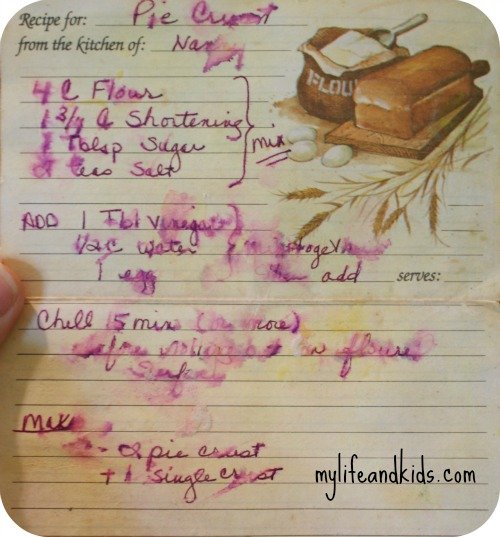 Recipe for: Pie Crust
from the kitchen of: Nanny
4 C Flour
1 3/4 C Shortening
1 Tblsp Sugar
2 teas Salt
Mix
FLOUR
ADD 1 Tbl Vinegar
1/2 C water
1 egg
add
serves:
Chill 15 min (or more)
before rolling out on floured
Surface
Max
- 2 pie crust
+ 1 single crust
mylifeandkids.com